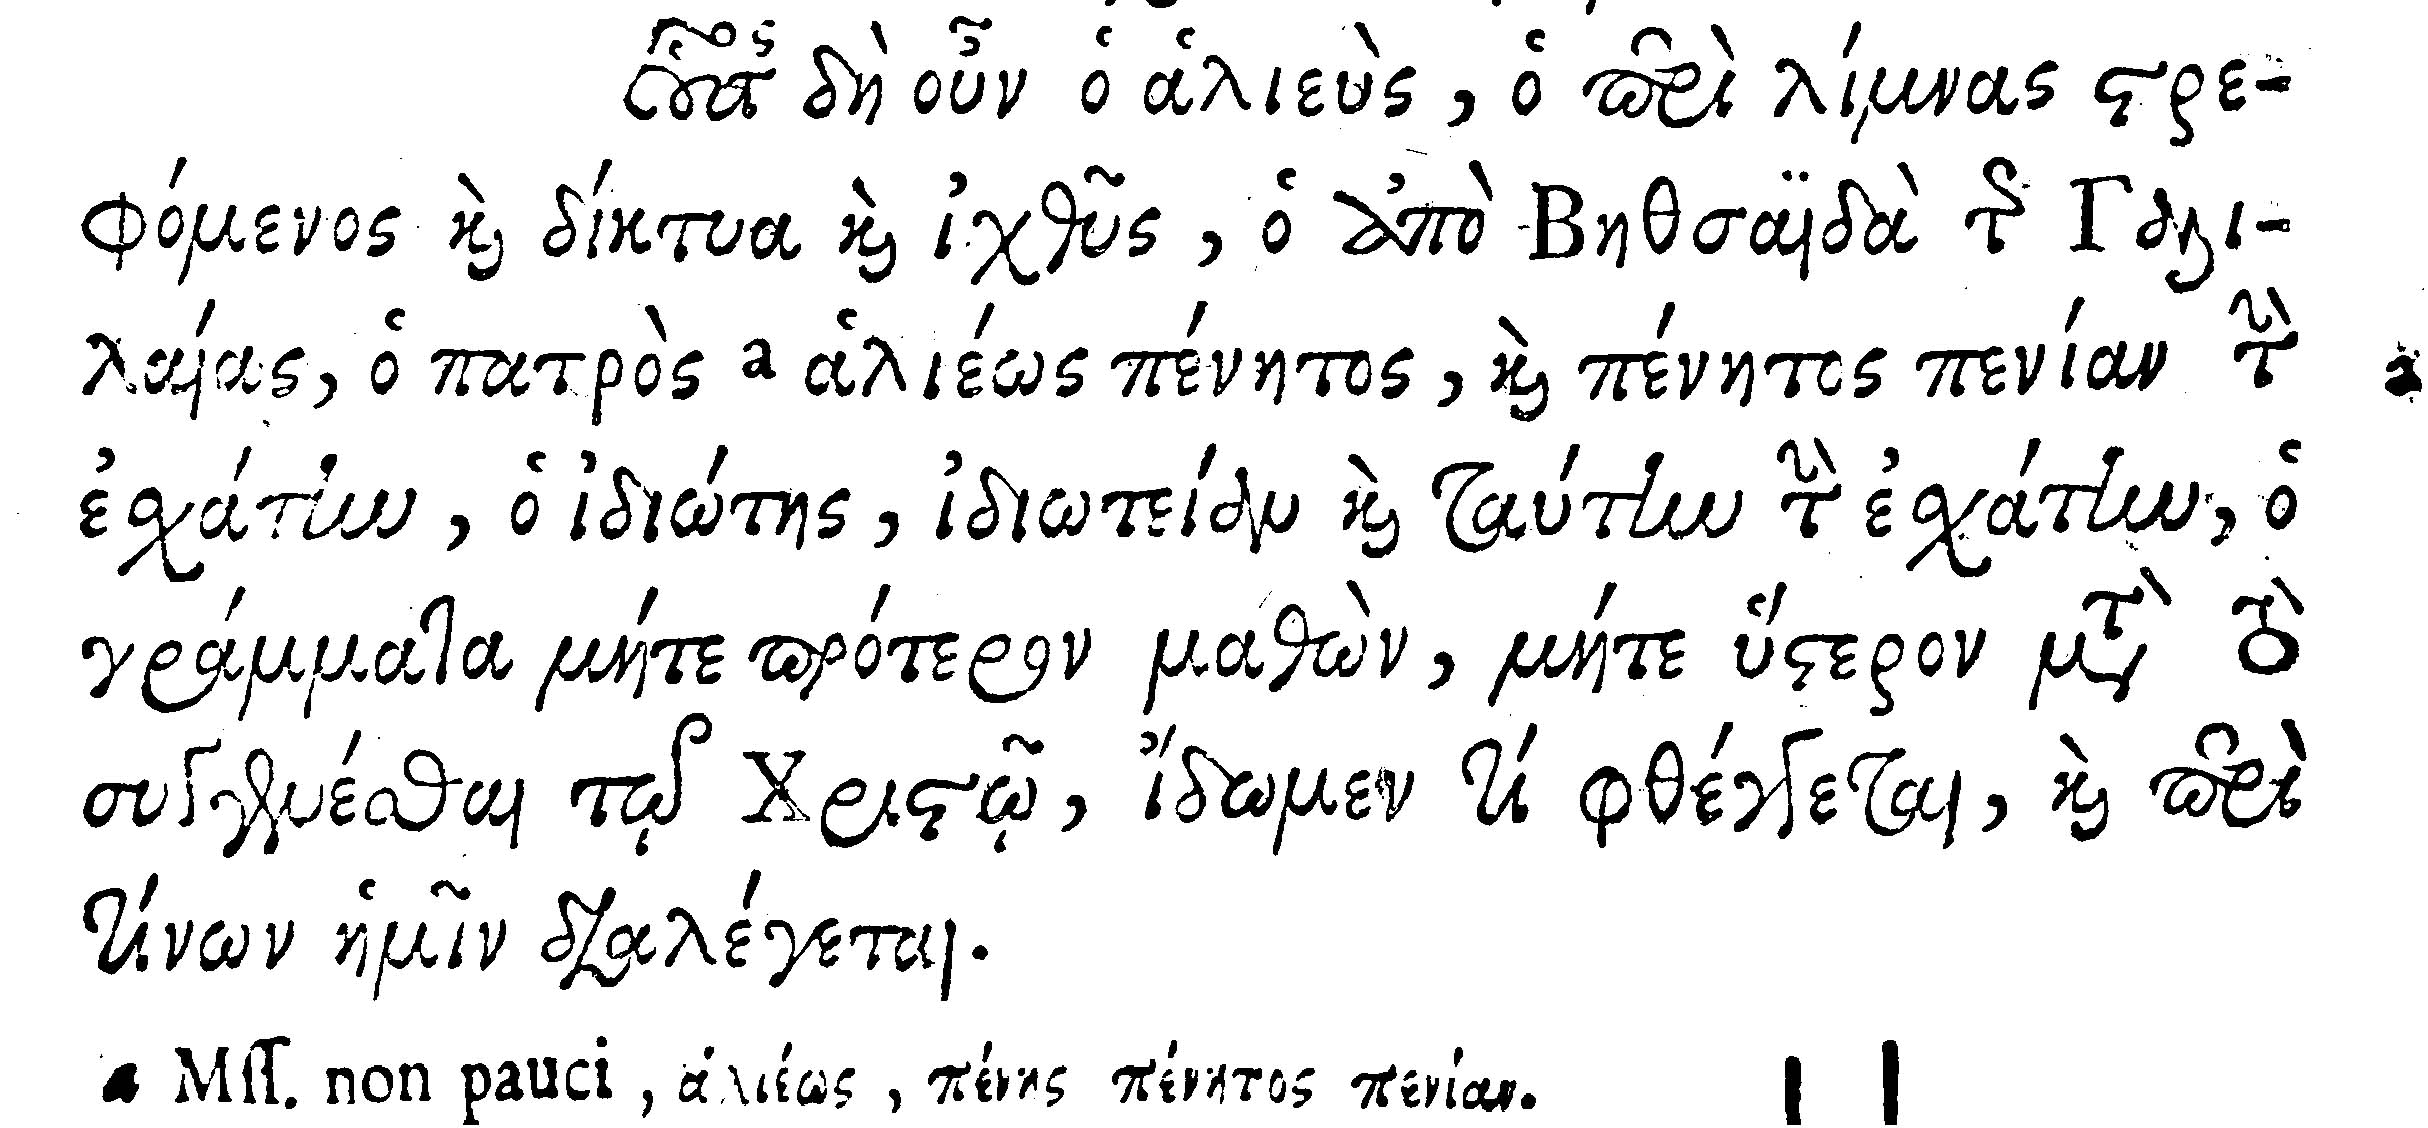 οὗτος δὴ οὖν ὁ ἁλιεὺς, ὁ περὶ λίμνας στρε-
φόμενος καὶ δίκτυα καὶ ἰχθῦς, ὁ ἀπὸ Βηθσαϊδὰ τῆς Γαλι-
λαίας, ὁ πατρὸς a ἁλιέως πένητος, καὶ πένητος πενίαν τὴν
ἐσχάτην, ὁ ἰδιώτης, ἰδιωτείαν καὶ ταύτην τὴν ἐσχάτην, ὁ
γράμματα μήτε πρότερον μαθὼν, μήτε ὕστερον μετὰ τὸ
συγγενέσθαι τῷ Χριστῷ, ἴδωμεν τί φθέγγεται, καὶ περὶ
τίνων ἡμῖν διαλέγεται.
a Mſſ. non pauci, ἁλιέως, πένης πένητος πενίαν.